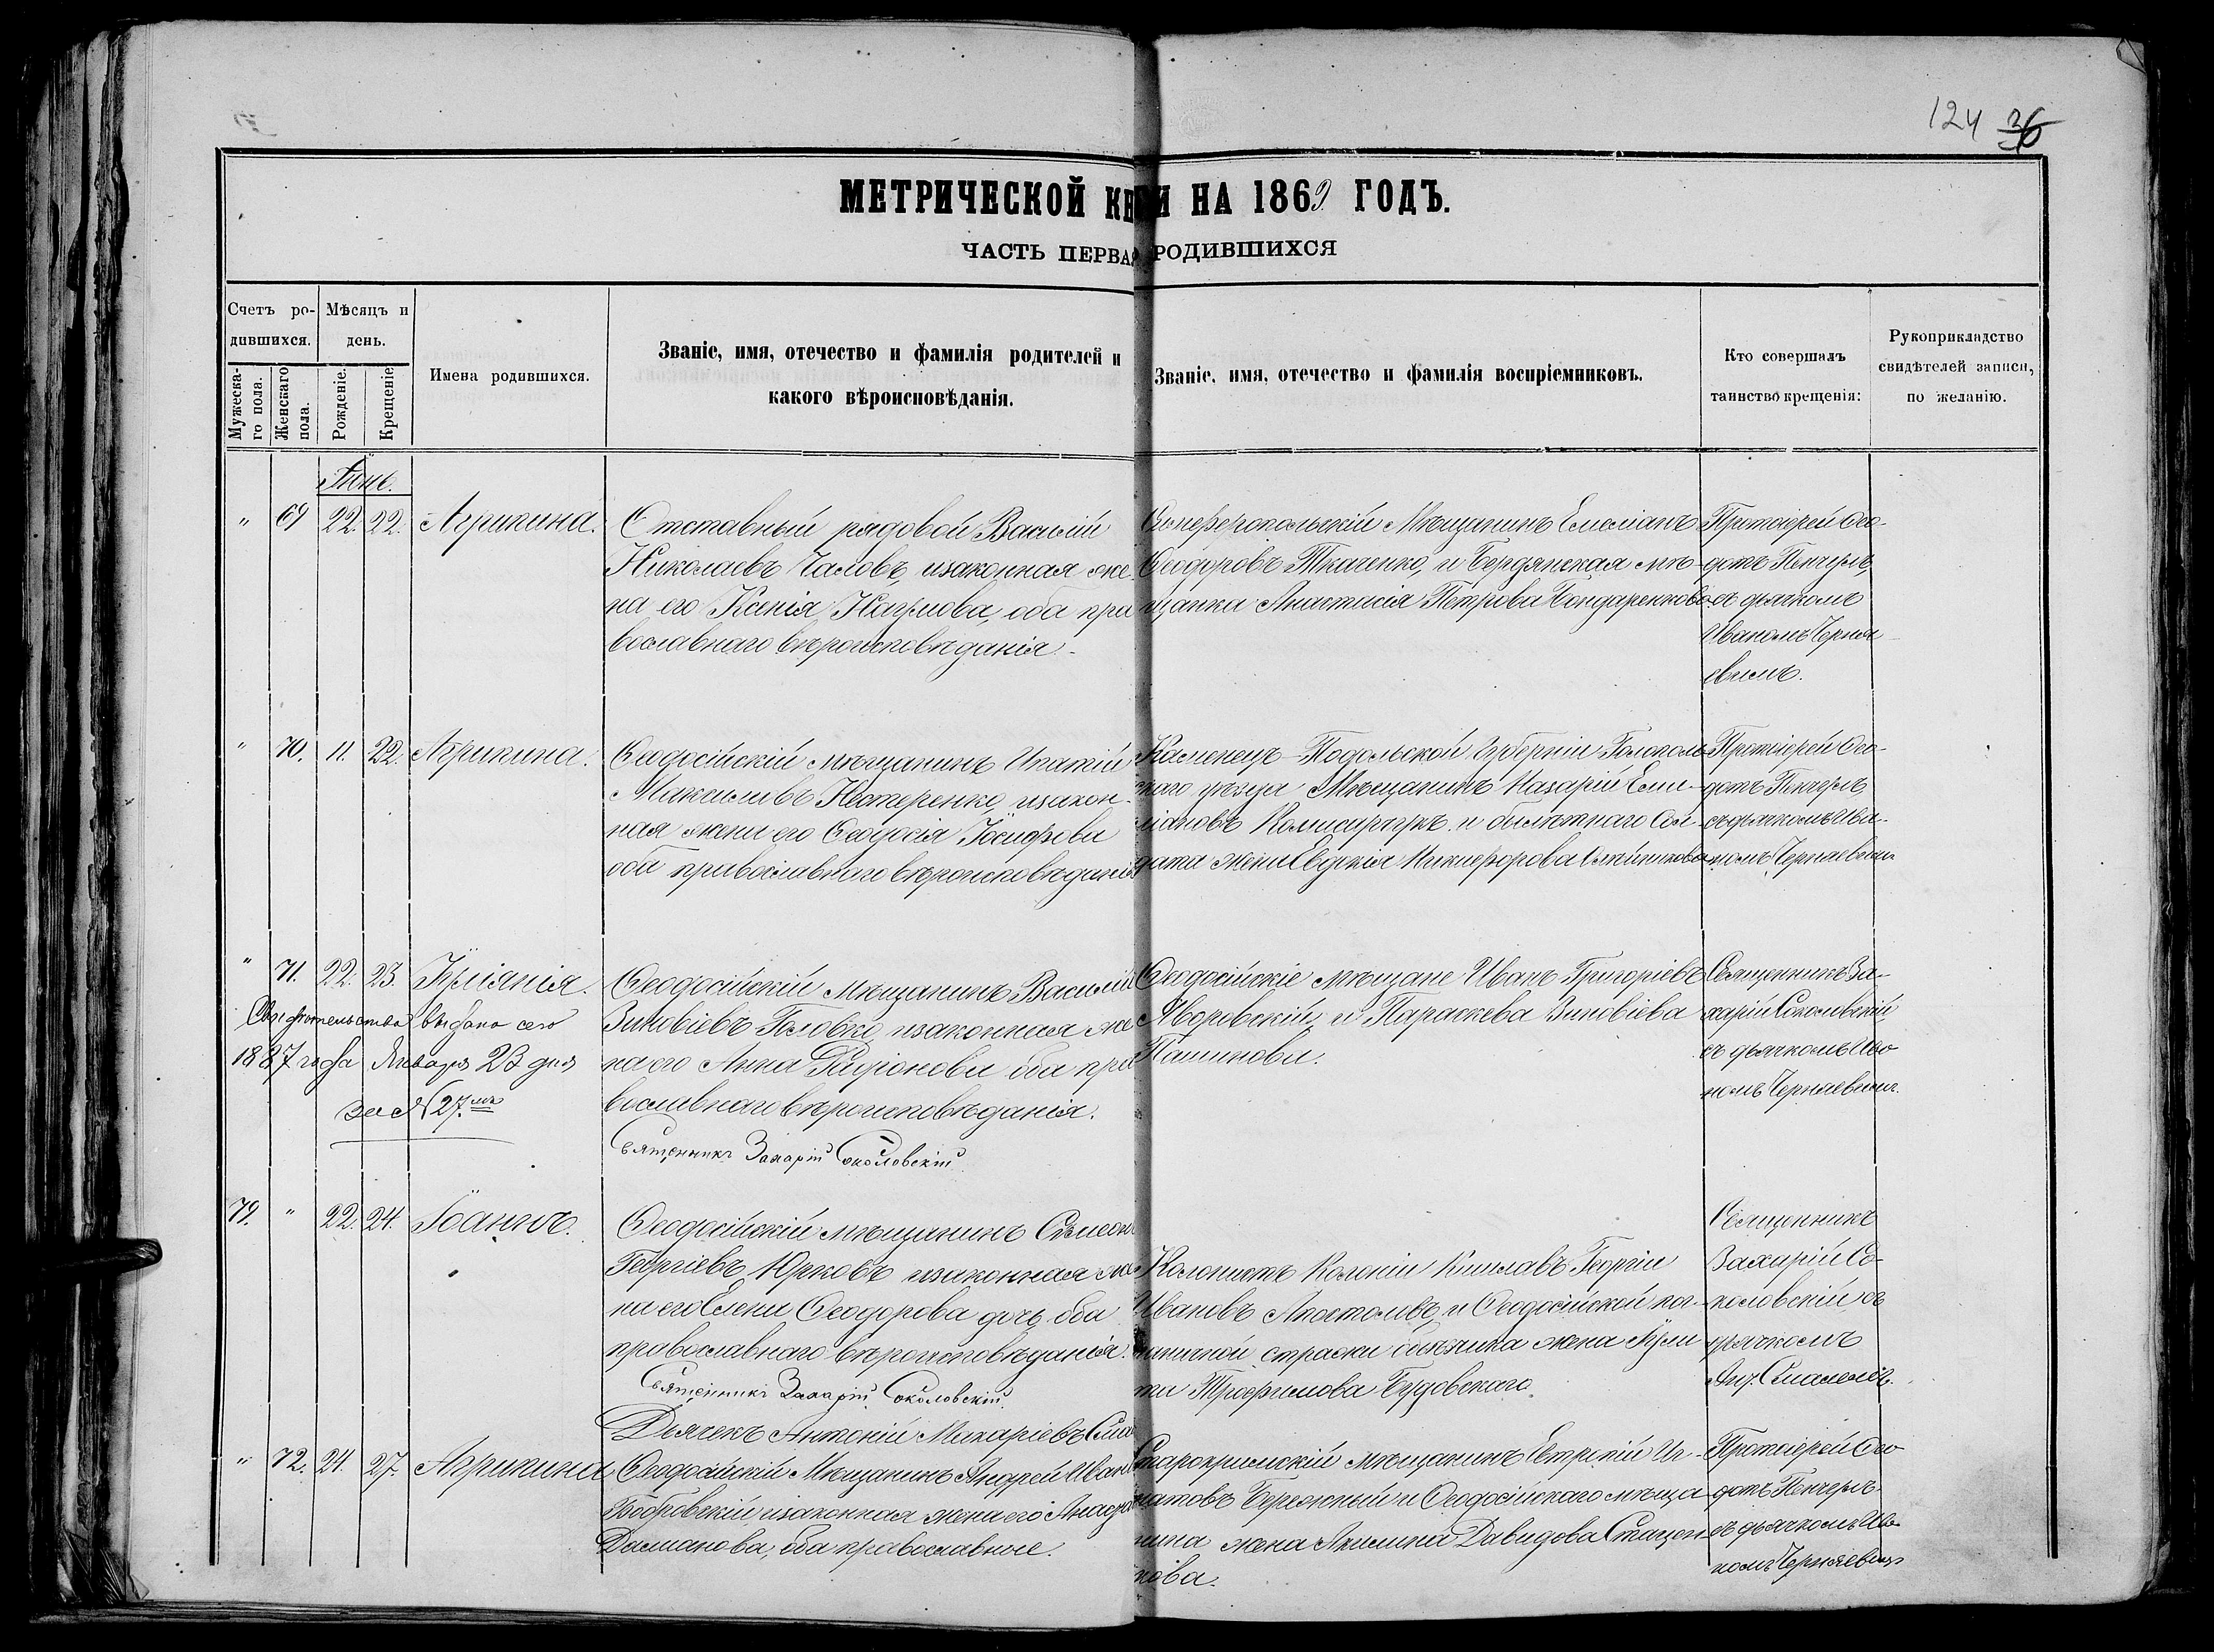 124 36
МЕТРИЧЕСКОЙ КНИ НА 1869 ГОДЪ.
ЧАСТЬ ПЕРВАЯ РОДИВШИХСЯ
Счетъ ро-
дившихся.
Мужеска-
го пола.
Женскаго
пола.
Мѣсяцъ и
день.
Рожденіе.
Крещеніе.
Имена родившихся.
Званіе, имя, отечество и фамилія родителей и
какого вѣроисповѣданія.
Званіе, имя, отечество и фамилія воспріемниковъ.
Кто совершалъ
таинство крещенія:
Рукоприкладство
свидѣтелей записи,
по желанію.
Іюнь.
" 69 22. 22. Агрипина.
Отставный рядовой Василій
Николаевъ Чаловъ, изаконная же-
на его Ксенія Наумова, оба пра
вославнаго вѣроисповѣданія.
Симферопольскій Мѣщанинъ Емеліанъ
Ѳеодоровъ Ткаченко, и Бердянская мѣ-
щанка Анастасія Петрова Бондаренкова
Протоіерей Ѳео-
дотъ
съ дьячкомъ
Иваномъ Черня-
евымъ.
" 70. 11. 22. Агрипина.
Ѳеодосійскій мѣщанинъ Ипатій
Максимовъ Нестеренко, изакон-
ная жена его Ѳеодосія Іосифова
оба православнаго вѣроисповѣданія
Каменецъ-Подольской Губерніи
скаго уѣзда Мѣщанинъ Назарій Еме-
ліановъ и билетнаго Сол-
дата жена Евдокія Никифорова
Протоіерей Ѳео-
дотъ
съ дьячкомъ Ива-
номъ Черняевымъ
" 71. 22. 23. Іуліанія.
Свидѣтельство выдано сего
1887 года Января 23 дня
за № 27.мъ
Ѳеодосійскій мѣщанинъ Василій
Зиновіевъ Головко, изаконная же
на его Анна Родіонова оба пра
вославнаго вѣроисповѣданія.
Священникъ Захарій Соколовскій
Ѳеодосійскіе мѣщане Иванъ Григоріевъ
Яворовскій, и Параскева Зиновіева
Пашинова.
Священникъ За-
харій Соколовскій
съ дьячкомъ Ива
номъ Черняевымъ.
79. " 22. 24. Іоаннъ.
Ѳеодосійскій мѣщанинъ Сѵмеонъ
Георгіевъ Юрковъ изаконная же
на его Елена Ѳеодорова дочь, оба
православнаго вѣроисповѣданія.
Священникъ Захарій Соколовскій.
Дьячекъ Антоній Макаріевъ
Колонистъ Колоніи Кишлавъ Георгій
Ивановъ Апостоловъ, и Ѳеодосійской пог-
раничной стражи объѣзчика жена
Трофимова Будовскаго.
Священникъ
Захарій Со-
коловскій съ
дьячкомъ
" 72. 24. 27. Агрипина
Ѳеодосійскій Мѣщанинъ Андрей Иван
Бобровскій изаконная жена его
Даміанова, оба православные.
Старокримскій мѣщанинъ Евтихій Иг-
натовъ Бережный и Ѳеодосійскаго мѣща
нина жена Акилина Давидова
нова.
Протоіерей Ѳео
дотъ
съ дьячкомъ Ива
номъ Черняевымъ